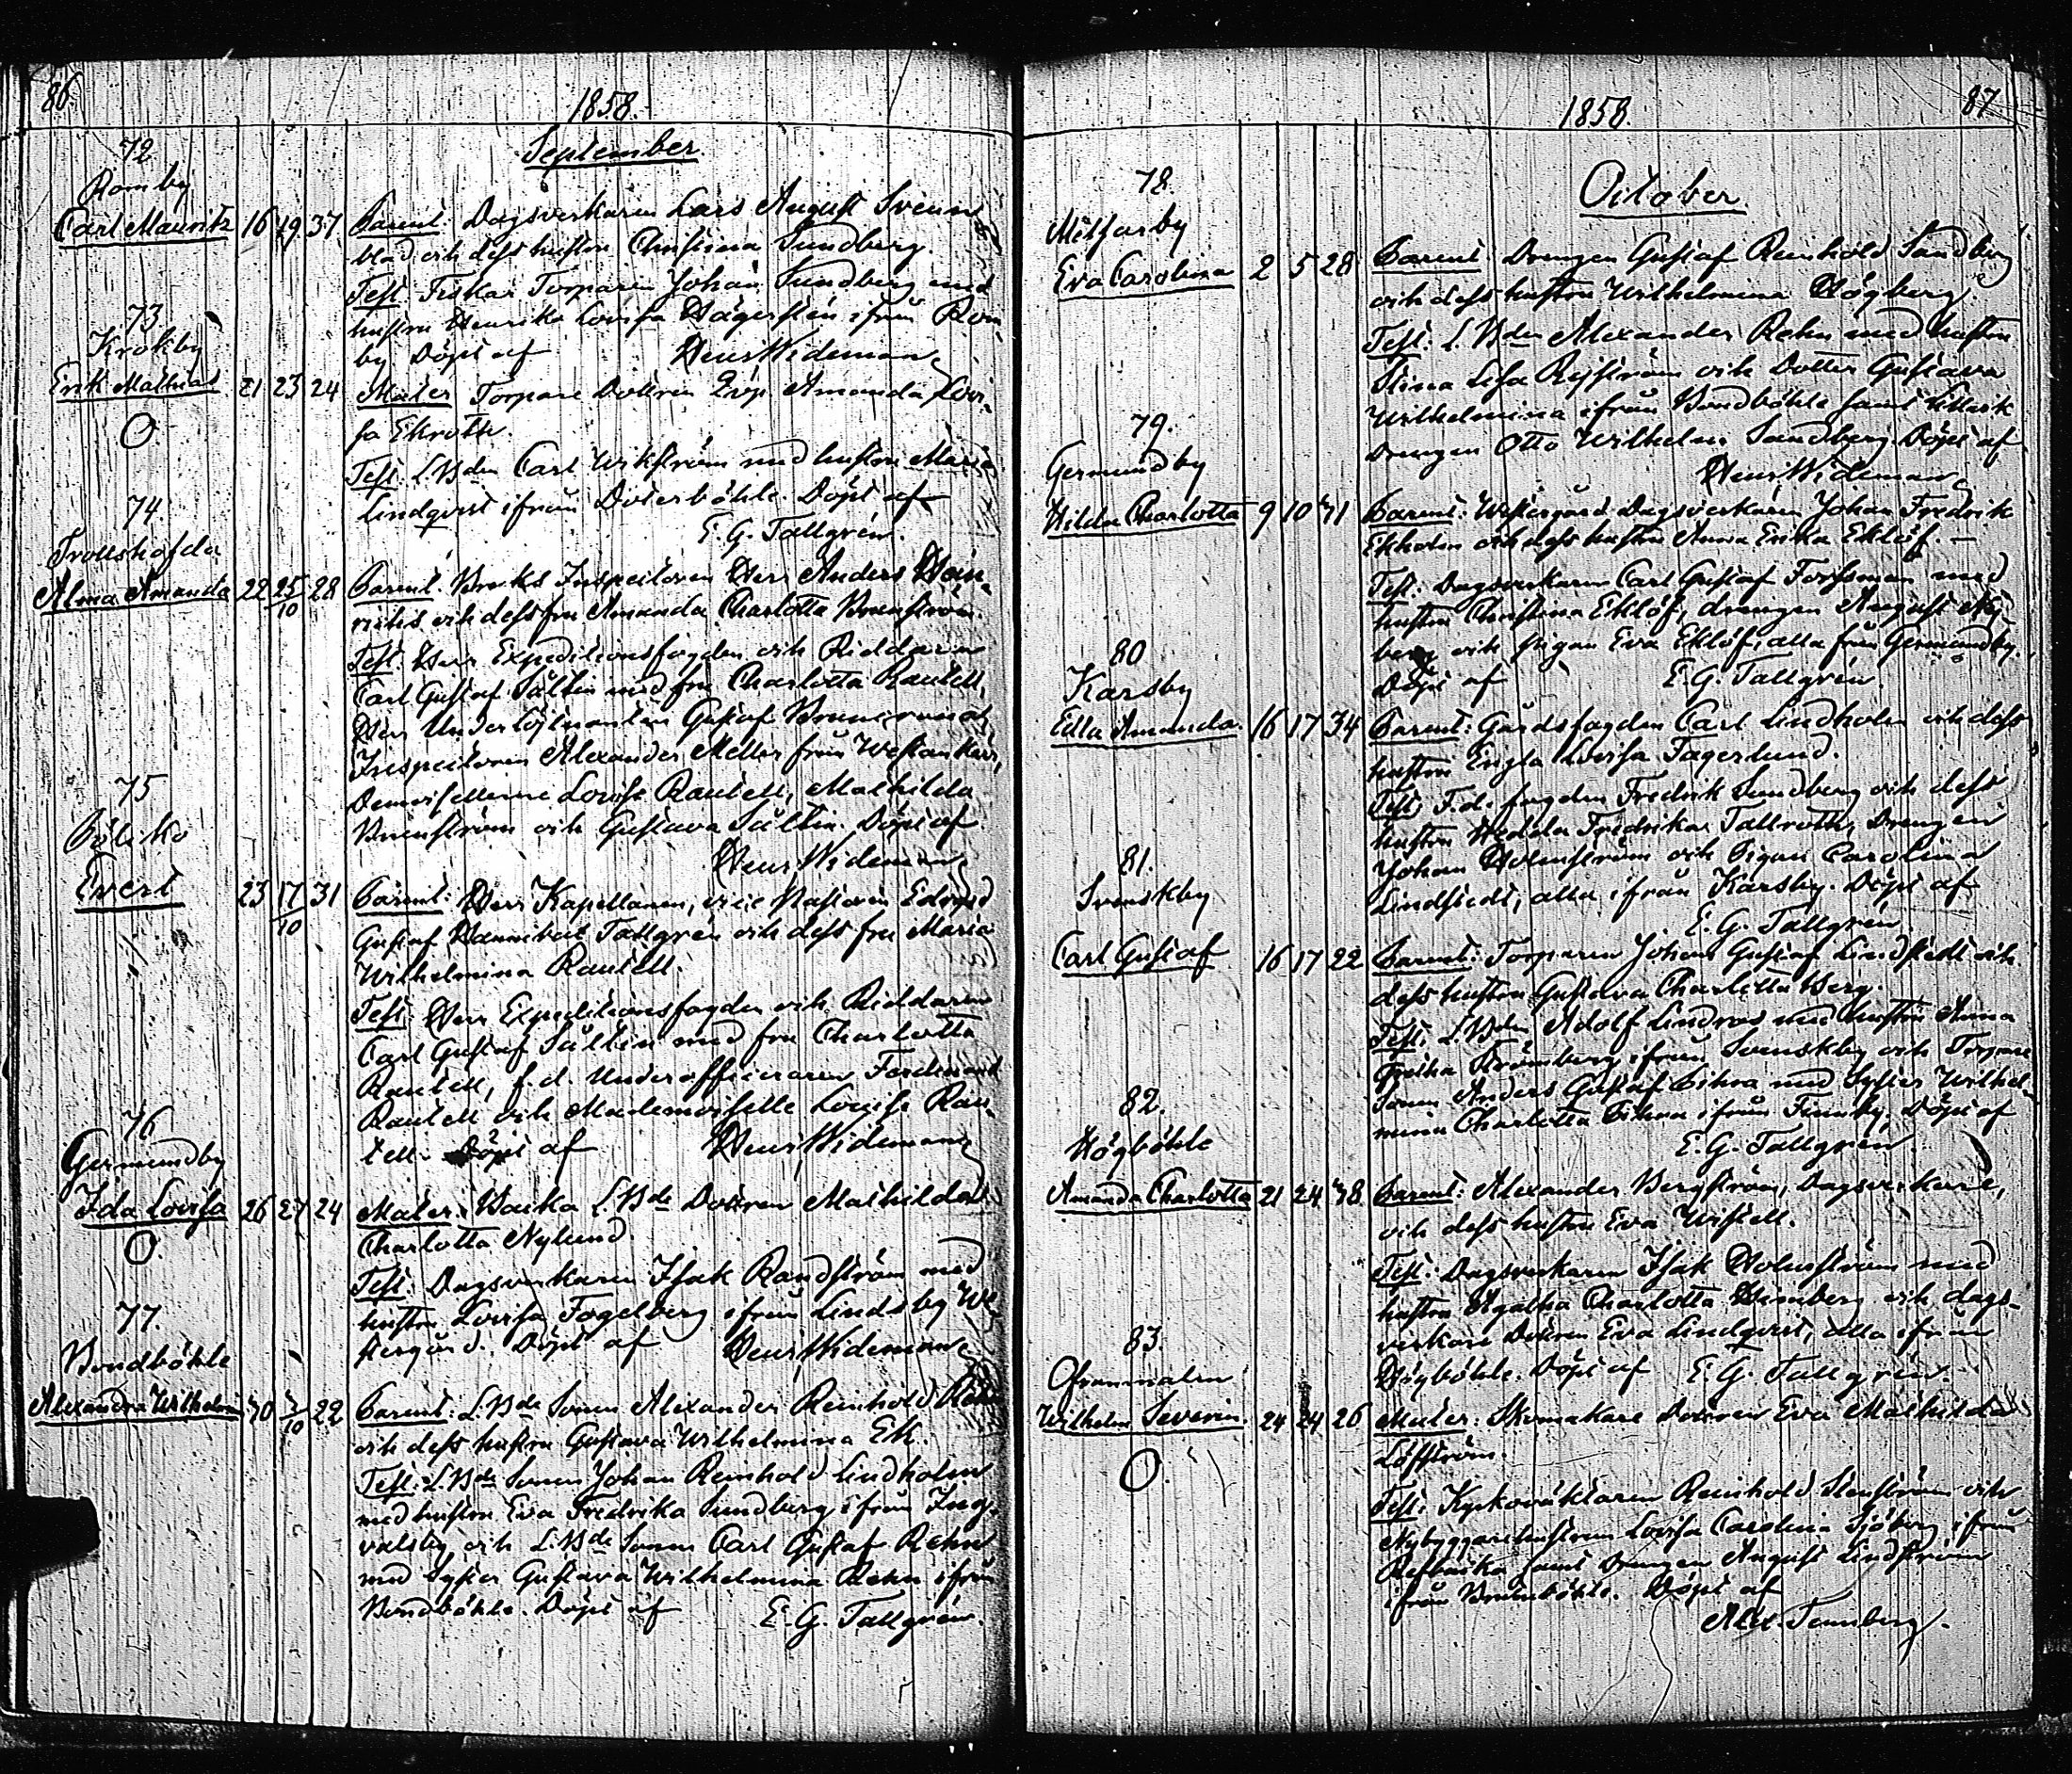 86.
1858.
September.
72
Romby
Carl Mauritz 16 19 37 Parent: Dagsverkaren Lars August Svenn
blad och dess hustru Christina Sundberg.
Test. Fiskar Torparen Johan Sundberg med
hustru Henrika Lovisa Hägersten ifrån Rom
by Döpt af Henr Wideman
73
Krokby
Erik Mathias 21 23 24 Mater Torpare Dottren Evp Amanda Lovi-
sa Ekroth.
O
Test. L.Bdn Carl Wikström med hustru Maria
Lindqvist ifrån Dotterböhle. Döpt af
E. G. Tallgrén.
74.
Trollshofda
Alma Amanda 22 25/10 28 Parent. Bruks Inspectoren Herr Anders Hein-
richs och dess fru Amanda Charlotta Brunström.
Test. Herr Expeditionsfogden och Riddaren
Carl Gustaf Sältin med fru Charlotta Rautell,
Herr Underlöjtnanten Gustaf Brunerona
Inspectoren Alexander Meller från Westankärr,
Demoisellerne Lovise Rautell, Mathilda
Brunström och Gustava Sältin. Döpt af
Henr Wideman
75
Evert 23 17/10 31 Parent: Herr Kapellanen, vice Pastoren Edvard
Gustaf Hannibal Tallgrén och dess fru Maria
Wilhelmina Rautell.
Test: Herr Expeditionsfogden och Riddaren
Carl Gustaf Sältin med fru Charlotta
Rautell, f.d. Underofficeraren Ferdinand
Rautell och Mademoiselle Louise Rau-
tell. Döpt af Henr Wideman
76
Germundby
Ida Lovisa 26 27 24 Mater: Backa L.Bde Dottren Mathilda
Charlotta Nylund.
O.
Test. Dagsverkaren Isak Randström med
hustru Lovisa Fogelberg ifrån Lindsby We
stergård. Döpt af Henr Wideman
77.
Bondböhle
Alexandra Wilhelmin 30 3/10 22 Parent: L.Bde Sonen Alexander Reinhold Rehn
och dess hustru Gustava Wilhelmina Ek.
Test: L.Bde Sonen Johan Reinhold Lindholm
med hustru Eva Fredrika Sundberg ifrån Ing-
valsby och L.Bde Sonen Carl Gustaf Rehn
med Syster Gustava Wilhelmina Rehn ifrån
Bondböhle. Döpt af E. G. Tallgrén.
1858.
87
October.
78.
Eva Carolina 2 5 28 Parent: Drengen Gustaf Reinhold Sandberg
och dess hustru Wilhelmina Högberg.
Test: L.Bden Alexander Rehn med hustru
Stina Lisa Rejström och Dotter Gustava
Wilhelmina ifrån Bondböhle samt
Drengen Otto Wilhelm Sandberg. Döpt af
Henr Wideman
79.
Germundby
Hilda Charlotta 9 10 41 Parent: Westergård Dagsverkaren Johan Fredrik
Ekholm och dess hustru Anna Erika Eklöf. —
Test: Dagsverkaren Carl Gustaf Forssman med
hustru Christina Eklöf, drengen August Ny-
berg och pigan Eva Eklöf, alla från Germundby.
Döpt af E. G. Tallgrén.
80
Karsby
Edla Amanda. 16 17 34 Parent: Gårdsfogden Carl Lindholm och dess
hustru Engla Lovisa Fagerlund.
Test: F.d. fogden Fredrik Sundberg och dess
hustru Hedda Fredrika Tallroth, Drengen
Johan Holmström och Pigan Carolina
Lindstedt, alla ifrån Karsby. Döpt af
E. G. Tallgrén
81.
Svenskby
Carl Gustaf 16 17 22 Parent: Torparen Johan Gustaf Lindstedt och
dess hustru Gustava Charlotta Berg.
Test: L.Bden Adolf Lindroos med hustru Anna
Greta Strömberg ifrån Svenskby och Torpare
Sonen Anders Gustaf Sihra med Syster Wilhel-
mina Charlotta Sihra ifrån Finnby. Döpt af
E. G. Tallgrén.
82.
Högböhle
Amanda Charlotta 21 24 38. Parent: Alexander Bergström, Dagsverkare,
och dess hustru Eva Wistell.
Test: Dagsverkaren Isak Holmström med
hustru Agatha Charlotta Hemberg och dags-
verkare Dottren Eva Lindqvist, alla ifrån
Högböhle. Döpt af E. G. Tallgrén.
83.
Ofvanmalm
Wilhelm Severin. 24 24 26 Mater: Skomakare Dottren Eva Mathilda
Löfström.
O.
Test: Kyrkoväktaren Reinhold Stenström och
Nybyggarehustrun Lovisa Carolina Sjöberg ifrån
Refbacka samt Drengen August Lindström
ifrån Brunböhle. Döpt af
Alex. Tennberg.